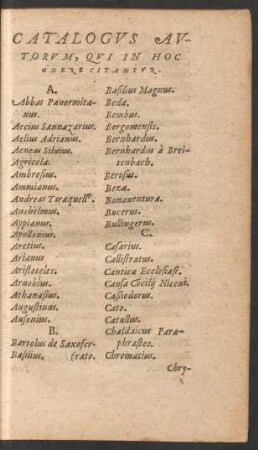 CATALOGVS AV-
TORVM, QVI IN HOC
ONERE CITANTVR.
A.
Abbas Panormita-
nus.
Accius Sannazarius.
Aelius Adrianus.
Aeneas Siluius.
Agricola.
Ambrosius.
Ammianus.
Andreas Tiraquellꝰ.
Anshelmus.
Appianus.
Apollonius.
Aretius.
Arianus
Aristoteles.
Arnobius.
Athanasius.
Augustinus.
Ausonius.
B.
Bartolus de Saxofer-
Basilius. (rato.
Basilius Magnus.
Beda.
Bembus.
Bergomensis.
Bernhardus.
Bernhardus à Brei-
tenbach.
Berosus.
Beza.
Bonauentura.
Bucerus.
Bullingerus.
C.
Caesarius.
Callistratus.
Cantica Ecclesiast.
Causa Cõcilij Niceni.
Cassiodorus.
Cato.
Catullus.
Chaldaicus Para-
phrastes.
Chromatius.
Chry-